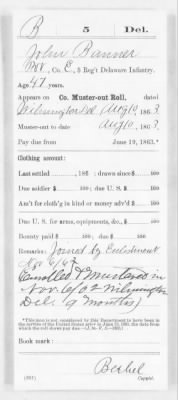 B 5 Del.
John Banner
Pvt., Co. E, 5 Reg't Delaware Infantry.
Age 47 years.
Appears on Co. Muster-out Roll, dated
Wilmington Del Aug 10, 1863
Muster-out to date Aug 10, 1863
Pay due from June 19, 1863.*
Clothing account:
Last settled , 186 ; drawn since $ 100
Due soldier $ 100; due U. S. $ 100
Am't for cloth'g in kind or money adv'd $ 100
Due U. S. for arms, equipments, &c., $ 100
Bounty paid $ 100; due $ 100
Remarks: Joined by Enlistment
Nov 6/62
Enrolled & Mustered in
Nov. 6/62 Wilmington
Del (9 months)
*This man is not considered of this Department to have been in
the service of the United States prior to June 19, 1863, the date from
which the roll shows pay due.
Book mark:
Berkel
Copyist.